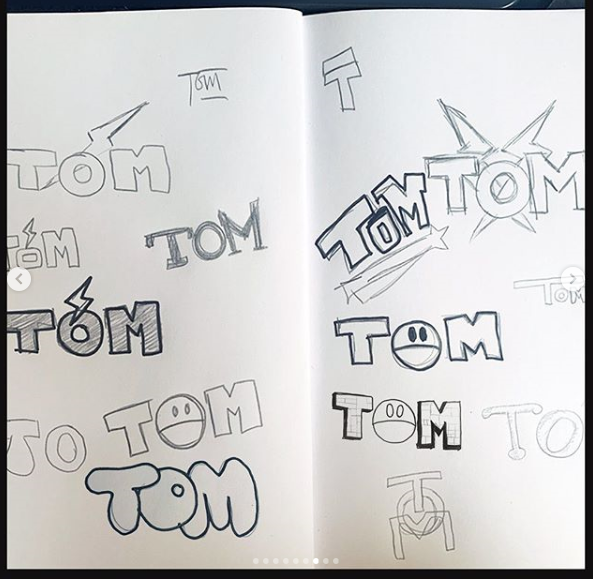 Tom
TOM
TOM
TOM
TOM
TO
TOM
TOM
T
TOM
TOM
TOM
TOM
TOM
TO
TOM